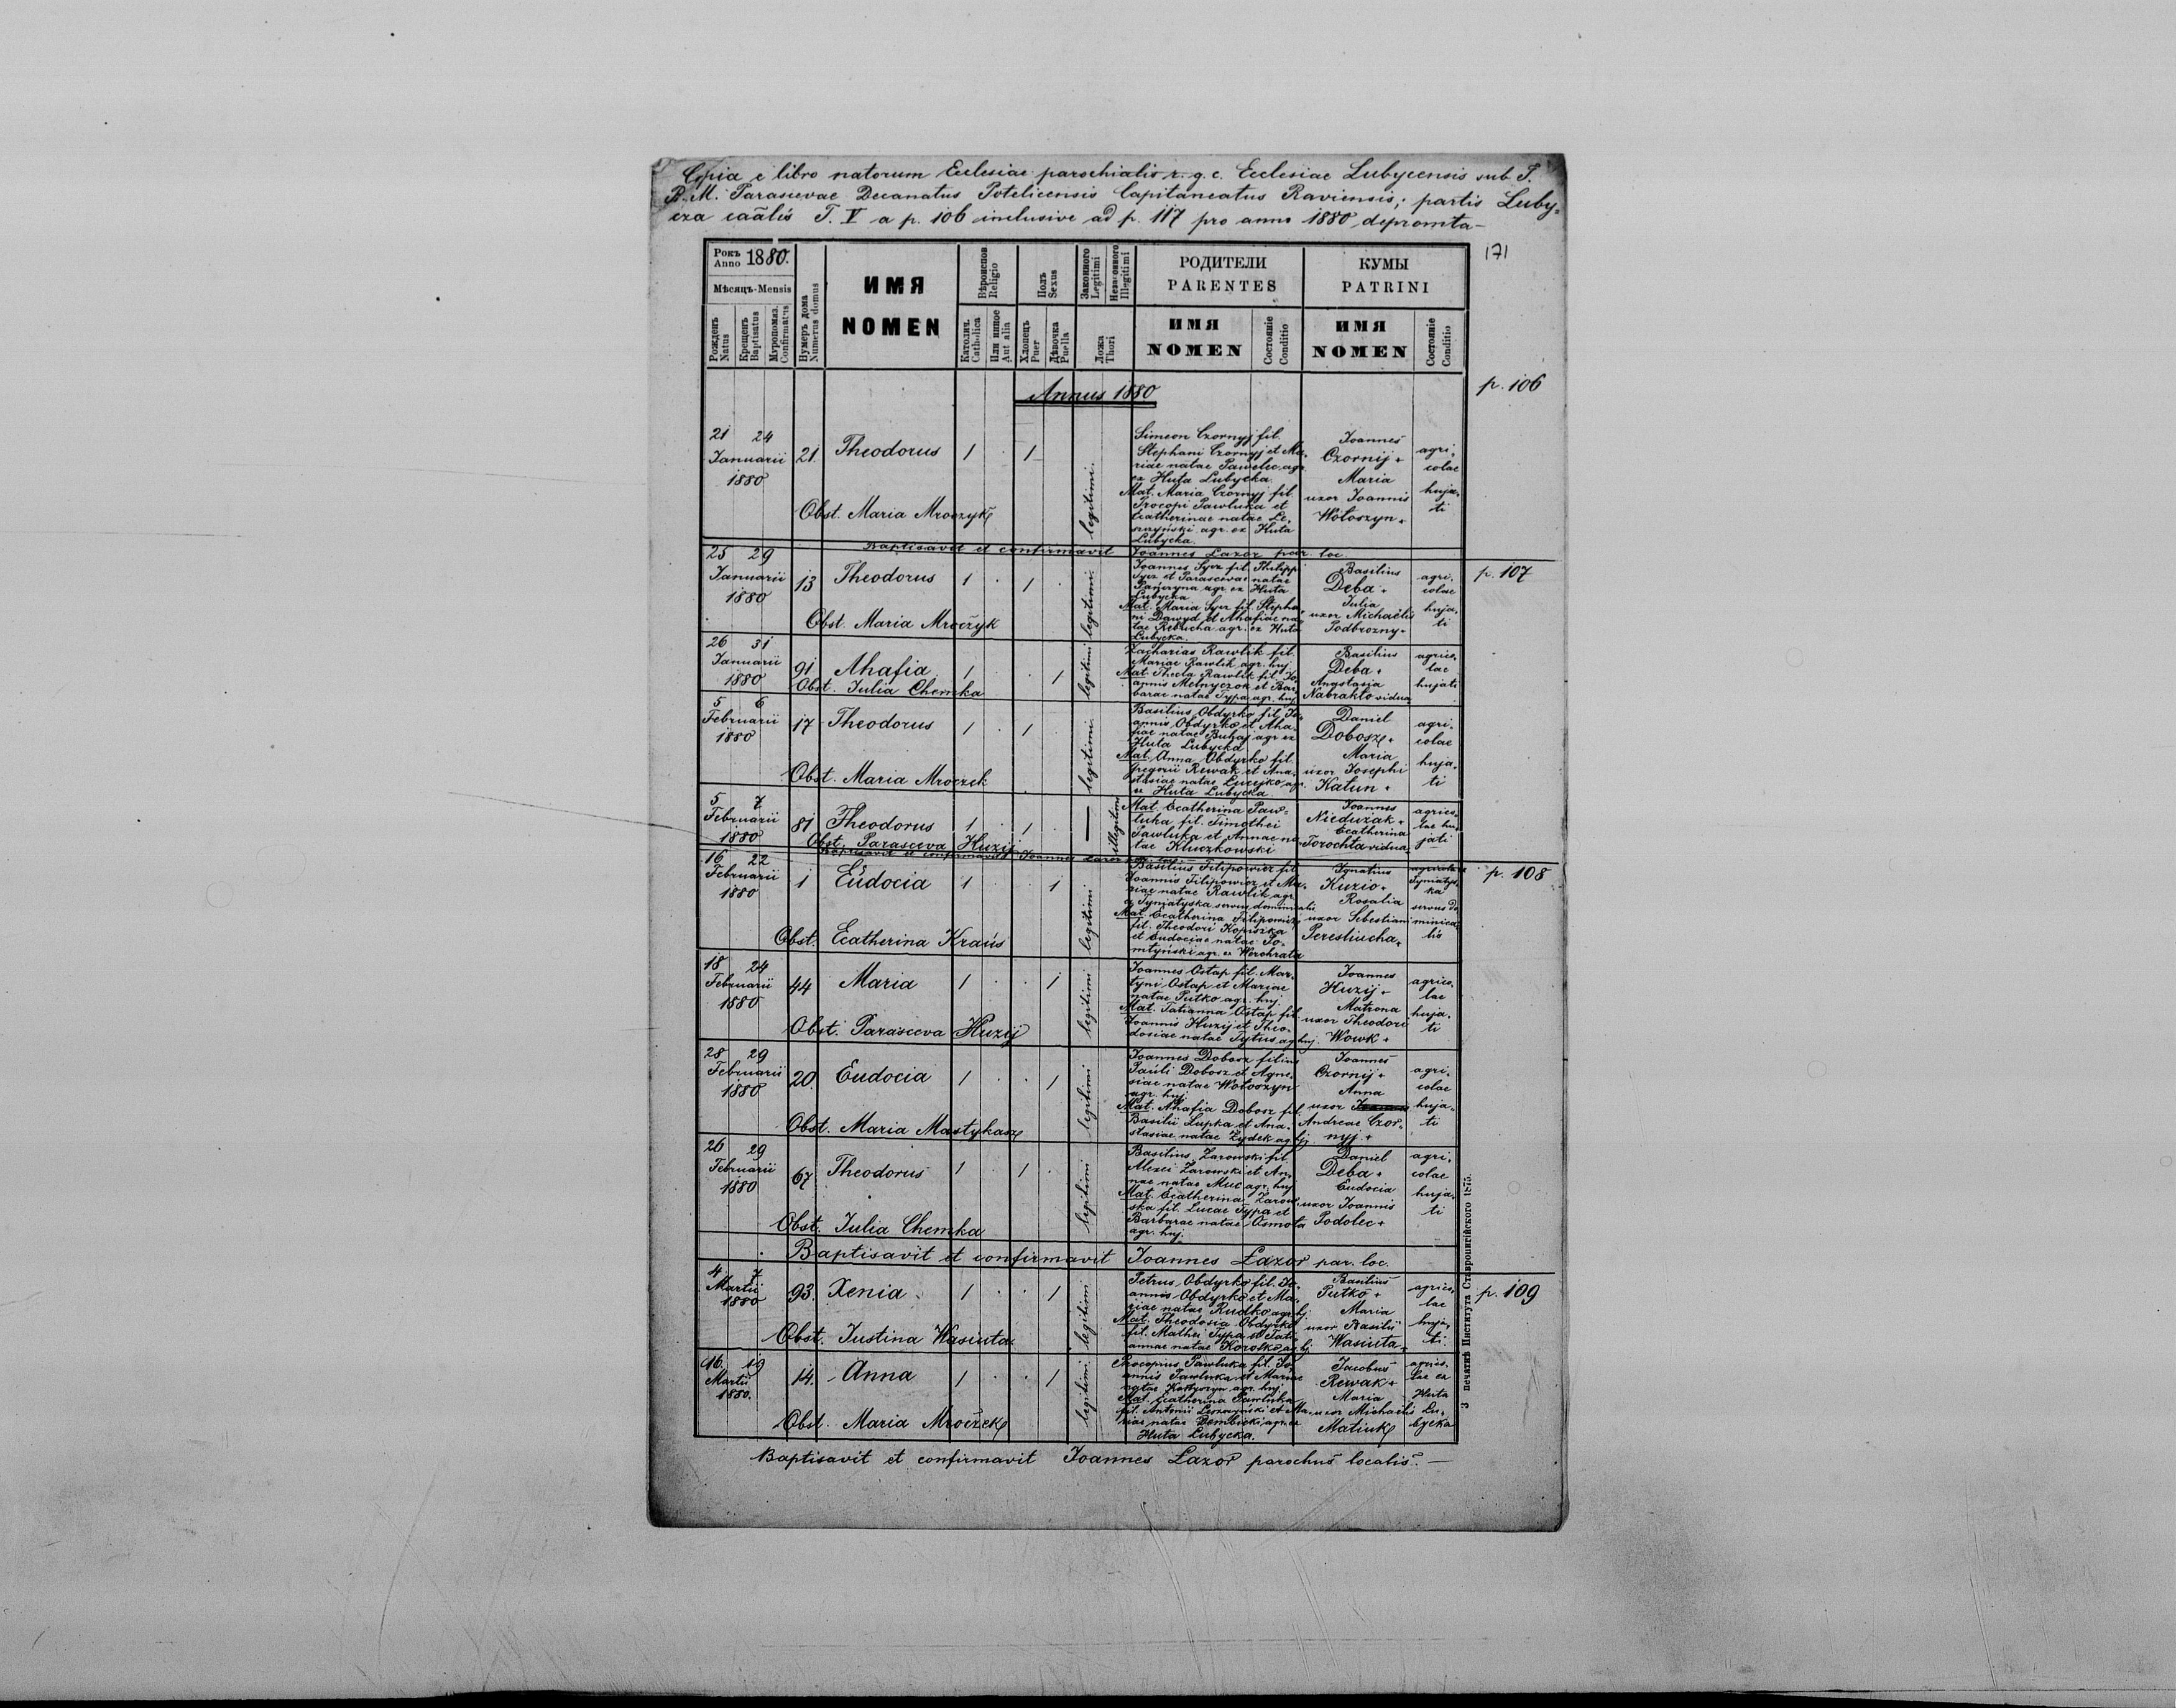 Copia e libro natorum Ecclesiae parochialis r. g. c. Ecclesiae Lubycensis sub T.
B. M. Parascevae Decanatus Potelicensis Capitaneatus Raviensis; partis Luby-
cza caãlis T. V a p. 106 inclusive ad p. 117 pro anno 1880 depromta-
171
Рокъ
Anno 1880.
Мѣсяцъ-Mensis
Рожденъ
Natus
Крещенъ
Baptisatus
Мѵропомаз.
Confirmatus
Нумеръ дома
Numerus domus
ИМЯ
NOMEN
Вѣроиспов
Religio
Католич.
Catholica
Или инное
Aut alia
Полъ
Sexus
Хлопецъ
Puer
Дѣвочка
Puella
Законного
Legitimi
Незаконного
Illegitimi
Ложа
Thori
РОДИТЕЛИ
PARENTES
ИМЯ
NOMEN
Состояніе
Conditio
КУМЫ
PATRINI
ИМЯ
NOMEN
Состояніе
Conditio
Annus 1880
p. 106
21 24
Januarii
1880
21.
Theodorus
1 . 1
Obst. Maria Mroczyk
legitimi.
Simeon Czornyj fil.
Stephani Czornyj et Ma-
riae natae Pawelec agr.
ex Huta Lubycka.
Mat. Maria Czornyj fil.
Procopi Pawluka et
Ecatherinae natae Le-
szczyński agr. ex Huta
Lubycka.
Joannes
Czornij +
Maria
uxor Joannis
Wołoszyn +
agri-
colae
huja-
ti
Baptisavit et confirmavit Joannes Łazor par. loc.
p. 107
25 29
Januarii
1880
13
Theodorus
1 . 1 .
Obst. Maria Mroczyk
legitimi.
Joannes Syer fil. Philippi
Syer et Parascevae natae
agr. ex Huta
Lubycka
Mat. Maria Syer fil. Stepha-
ni Dawyd et Ahafiae na-
tae agr. ex Huta
Lubycka.
Basilius
Deba +
Julia
uxor Michaëlis
Podbrozny +
agri-
colae
huja-
ti
26 31
Januarii
1880
91
Ahafia
1 . . 1
Obst. Julia Chemka
legitimi
Zacharias Rawlik fil.
Mariae Rawlik agr. huj.
Mat. Thecla Rawlik fil. Jo-
annis Melnyczok et Bar-
barae natae Typa agr. huj.
Basilius
Deba +
Anastasia
Nabrakto vidua
agrico-
lae
hujati
5 6
Februarii
1880
17
Theodorus
1 . 1
Obst. Maria Mroczek
legitimi.
Basilius Obdyrko fil. Jo-
annis Obdyrko et Aha-
fiae natae Buhaj agr ex
Huta Lubycka
Mat. Anna Obdyrko fil.
Gregorii Rewak et Ana-
stasiae natae Lucejko agr.
ex Huta Lubycka.
Daniel
Dobosz +
Maria
uxor Josephi
Katun +
agri-
colae
huja-
ti
5 7
Februarii
1880
81
Theodorus
1 . 1
Obst. Parasceva Huzij
illegitimi
Mat. Ecatherina Paw-
luka fil. Timothei
Pawluka et Annae na-
tae Kluczkowski
Joannes
Nieduzak +
Ecatherina
Torochta vidua
agrico-
lae hu-
jati
Baptisavit et confirmavit Joannes Łazor par. loc.
p. 108
16 22
Februarii
1880
1
Eudocia
1 . . 1
Obst. Ecatherina Kraus
legitimi
Basilius Filipowicz fil.
Joannis Filipowicz et Ma-
riae natae Rawlik agr.
ex Tyniatyska servus dominicalis
Mat. Ecatherina Filipowicz
fil. Theodori Kopiszka
et Eudociae natae To-
mtyński agr. ex Werchrata
Ignatius
Kuzio +
Rosalia
uxor Sebestiani
Perestiucha +
agricola
Tyniatys-
ka
servus do-
minica-
lis
18 24
Februarii
1880
44
Maria
1 . . 1
Obst. Parasceva Huzij
legitimi
Joannes Ostap fil. Mar-
tyni Ostap et Mariae
natae Putko agr. huj.
Mat. Tatianna Ostap fil.
Joannis Huzij et Theo-
dosiae natae Tytus ag huj.
Joannes
Huzij +
Matrona
uxor Theodori
Wowk +
agrico-
lae
huja-
ti
28 29
Februarii
1880
20.
Eudocia
1 . . 1
Obst. Maria Mastykasz
legitimi
Joannes Dobosz filius
Pauli Dobosz et Agne-
siae natae Wołoszyn
agr. huj.
Mat. Ahafia Dobosz fil.
Basilii Łupka et Ana-
stasiae natae Zydek ag hj.
Joannes
Czornij +
Anna
uxor
Andreae Czor-
nyj +
agri-
colae
huja-
ti
26 29
Februarii
1880
67
Theodorus
1 . 1 .
Obst. Julia Chemka
legitimi
Basilius Żarowski fil.
Alexei Żarowski et An-
nae natae Muc agr. huj.
Mat. Ecatherina Żarow-
ska fil. Lucae Typa et
Barbarae natae Osmota
agr. huj.
Daniel
Deba +
Eudocia
uxor Joannis
Podolec +
agri-
colae
huja-
ti
Baptisavit et confirmavit Joannes Łazor par. loc.
p. 109
4 7
Martii
1880
93.
Xenia
1 . . 1
Obst. Justina Wasiuta
legitimi
Petrus Obdyrko fil. Jo-
annis Obdyrko et Ma-
riae natae Rudko agr. hj.
Mat. Theodosia Obdyrko
fil. Mathei Typa et Tati-
annae natae Korotko ag hj.
Basilius
Putko +
Maria
uxor Basilii
Wasiuta +
agrico-
lae
huja-
ti.
16. 19
Martii
1880.
14.
Anna
1 . . 1
Obst. Maria Mroczek
legitimi
Procopius Pawluka fil. Jo-
annis Pawluka et Mariae
natae agr. huj.
Mat. Ecatherina Pawluka
fil. Antonii Leszczyński et Ma-
riae natae Dembicki agr. ex
Huta Lubycka.
Jacobus
Rewak +
Maria
uxor Michaëlis
Matiuk
agrico-
lae ex
Huta
Lu-
bycka
Baptisavit et confirmavit Joannes Łazor parochus localis. —
З печатнѣ Института Ставропигійского 1875.